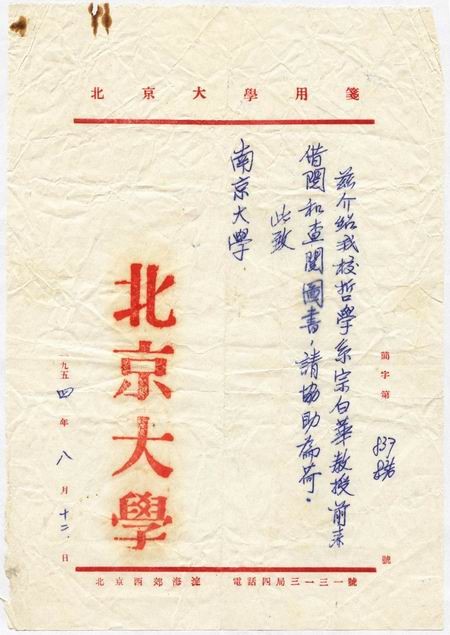 北京大學用箋
簡字第 837 號
茲介紹我校哲學系宗白華教授前來
借閱和查閱圖書,請協助為荷。
此致
南京大學
北京大學
一九五四年八月十二日
北京西郊海淀 電話四局三一三一號